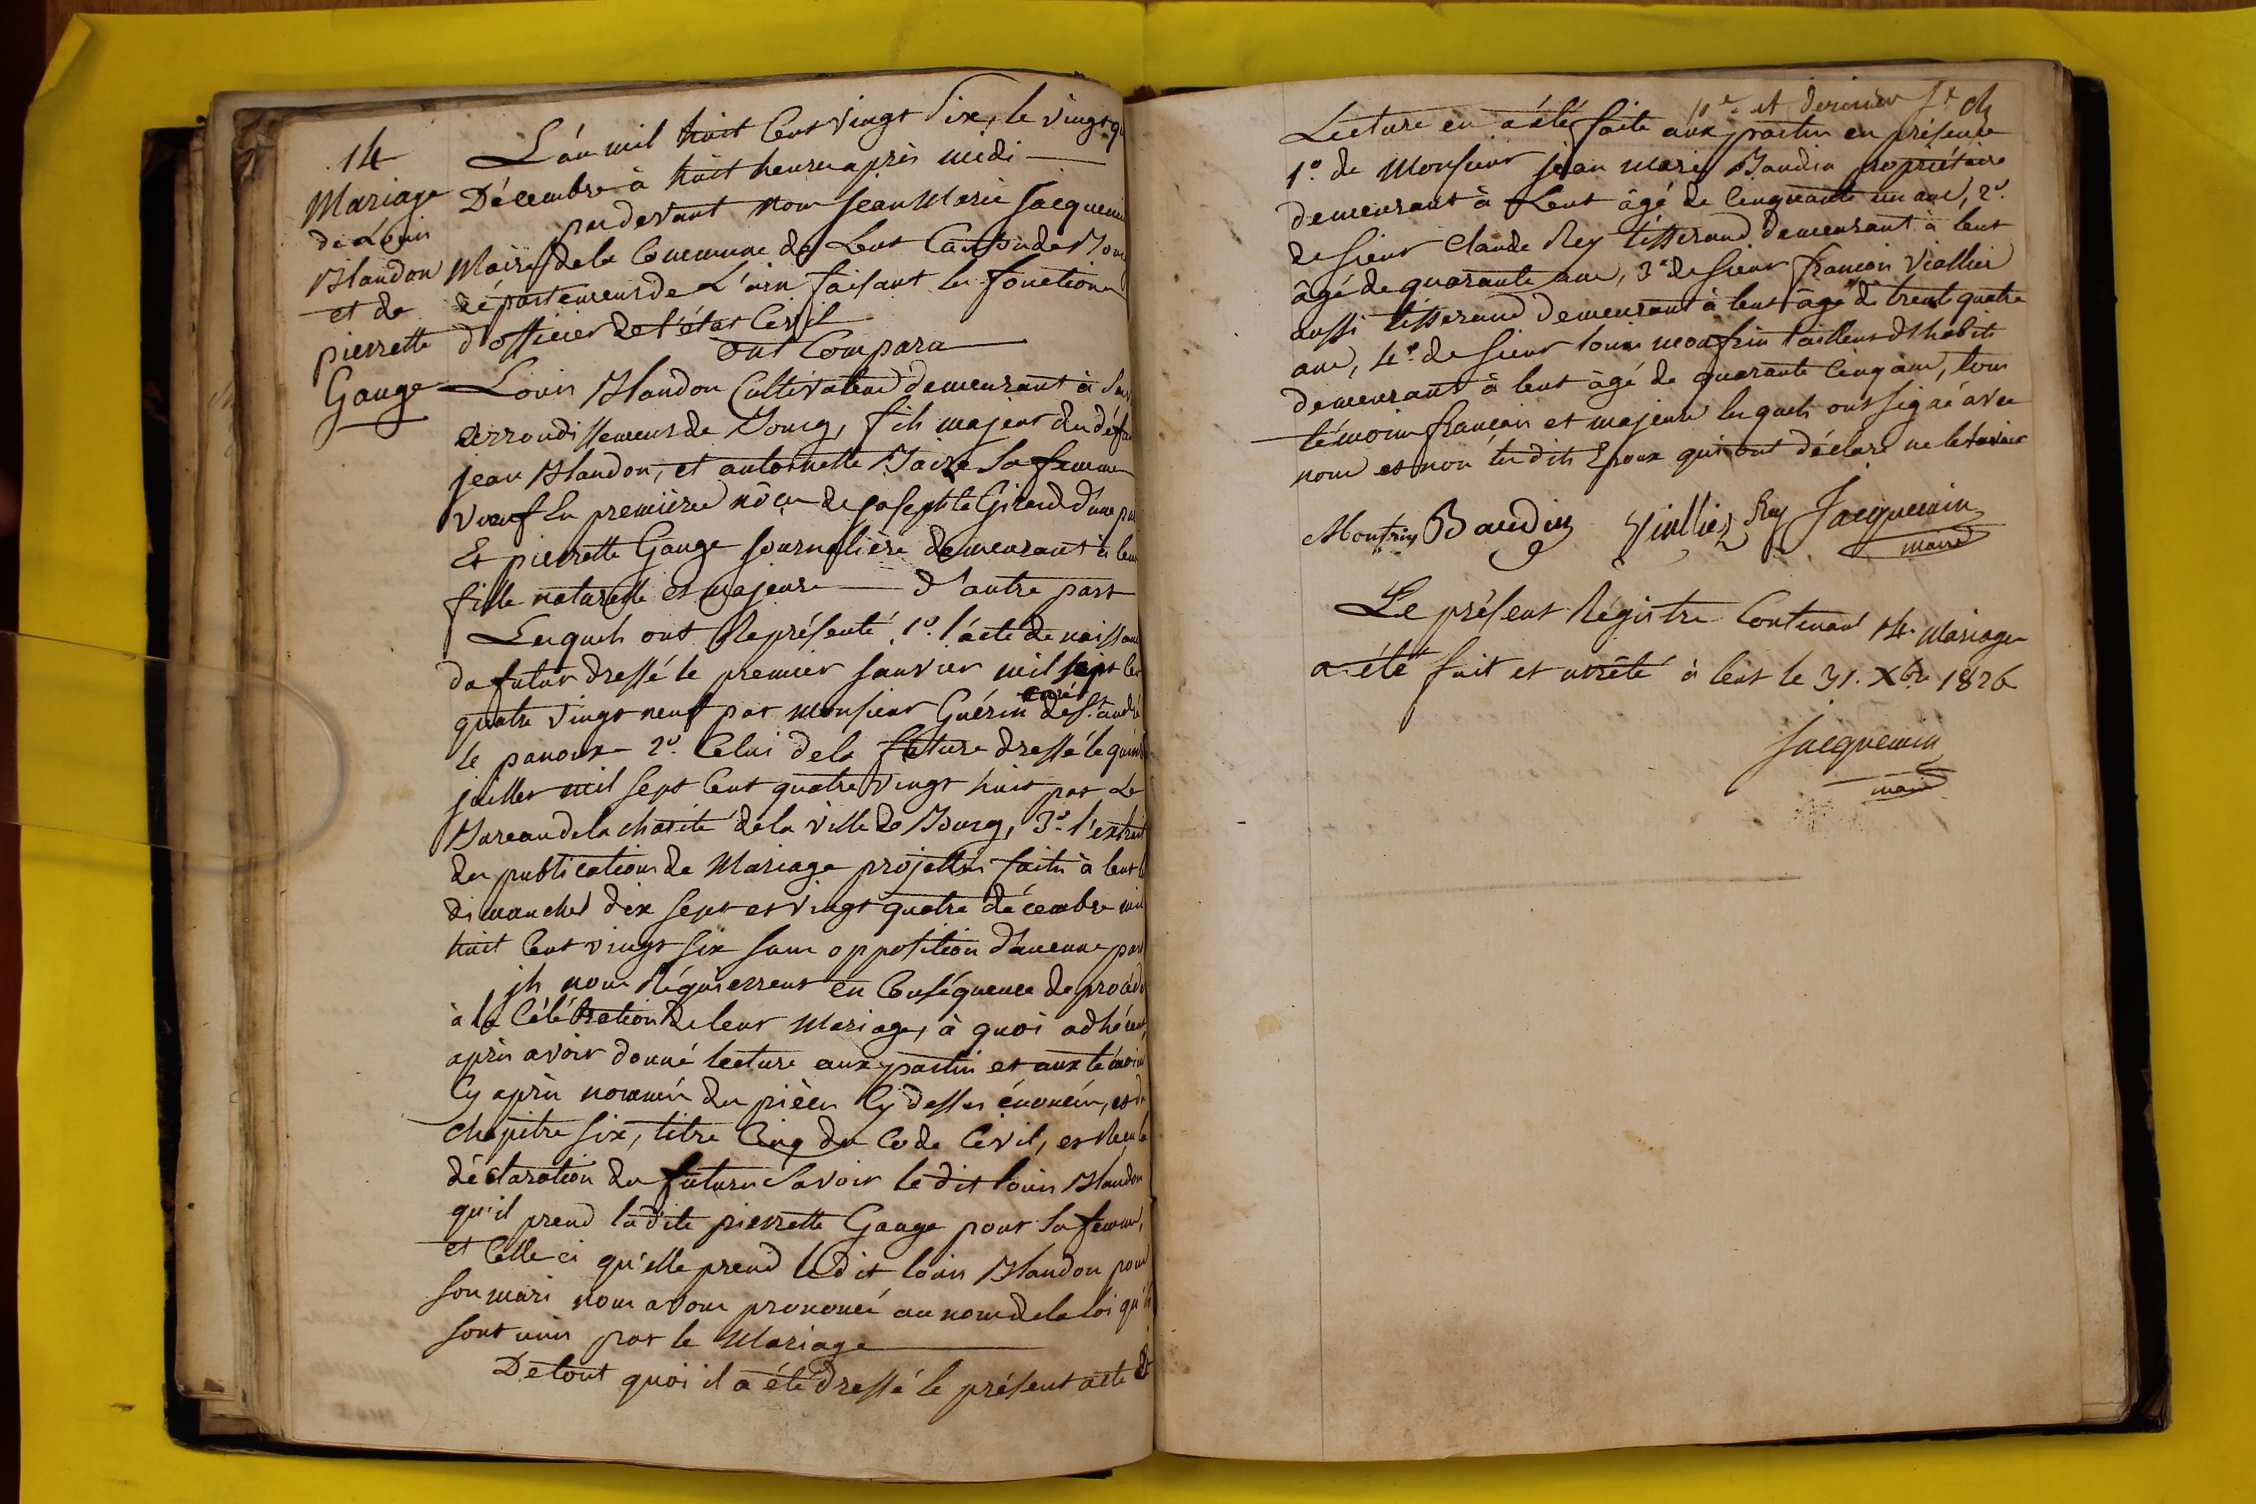 14
Mariage
de Louis
Blandon
et de
pierrette
Gauge
L'an mil huit Cent vingt Six, le vingt qu
Décembre à huit heures après midi
par devant nous Jean Marie Jacquemin
Maire de la Commune de Lent Canton de Bour
département de L'ain faisant les fonctions
d'officier de l'état Civil
ont Comparu
Louis Blandon Cultivateur demeurant à
arrondissement de Bourg, fils majeur du défu
jean Blandon, et antoinette Baize Sa femme
veuf En premières nôces de Josephte Girard d'une pa
Et pierrette Gauge journalière demeurant à len
fille naturelle et majeure d'autre part
Lesquels ont Représenté 1º. l'acte de naissan
du futur dressé le premier janvier mil sept ce
quatre vingt neuf par monsieur Guérin curé de St. andré
le panoux 2º. Celui de la future dressé le quin
juillet mil sept Cent quatre vingt huit par Le
Bureau de la charité de la ville de Bourg, 3º. l'extrait
des publications de Mariage projettés faites à lent l
dimanches dix sept et vingt quatre décembre mil
huit Cent vingt six sans opposition d'aucune part
jls nous Réquierrent en Conséquence de procéd
à la Célébration de leur Mariage, à quoi adhérent,
après avoir donné lecture aux parties et aux témoins
Cy après nommés des pièces Cy dessus énoncées, et d
chapitre six, titre Cinq du Code Civil, et Reçu la
déclaration des futurs Savoir le dit louis Blandon
qu'il prend la dite pierrette Gauge pour Sa femme,
et Celle ci qu'elle prend le dit louis Blandon pour
son mari nous avons prononcé au nom de la loi qu'ils
sont unis par le Mariage
De tout quoi il a été dressé le présent acte &
et dernier
Lecture en a été faite aux parties en présence
1º. de Monsieur jean marie Baudin propriétaire
demeurant à Lent âgé de Cinquante un ans, 2º.
de sieur Claude Rey tisserand demeurant à lent
âgé de quarante ans, 3º de sieur françois Viallier
aussi tisserand demeurant à lent âgé de trente quatre
ans, 4º. de sieur louis monfrin tailleur d'habits
demeurant à lent âgé de quarante Cinq ans, tous
témoins français et majeurs lesquels ont signé avec
nous et non les dits Epoux qui ont déclaré ne le savoir
Monfrin Baudin Viallier Rey Jacquemin
maire
Le présent Régistre Contenant 14 Mariages
a été fait et arrêté à lent le 31. Xbre 1826
Jacquemin
maire